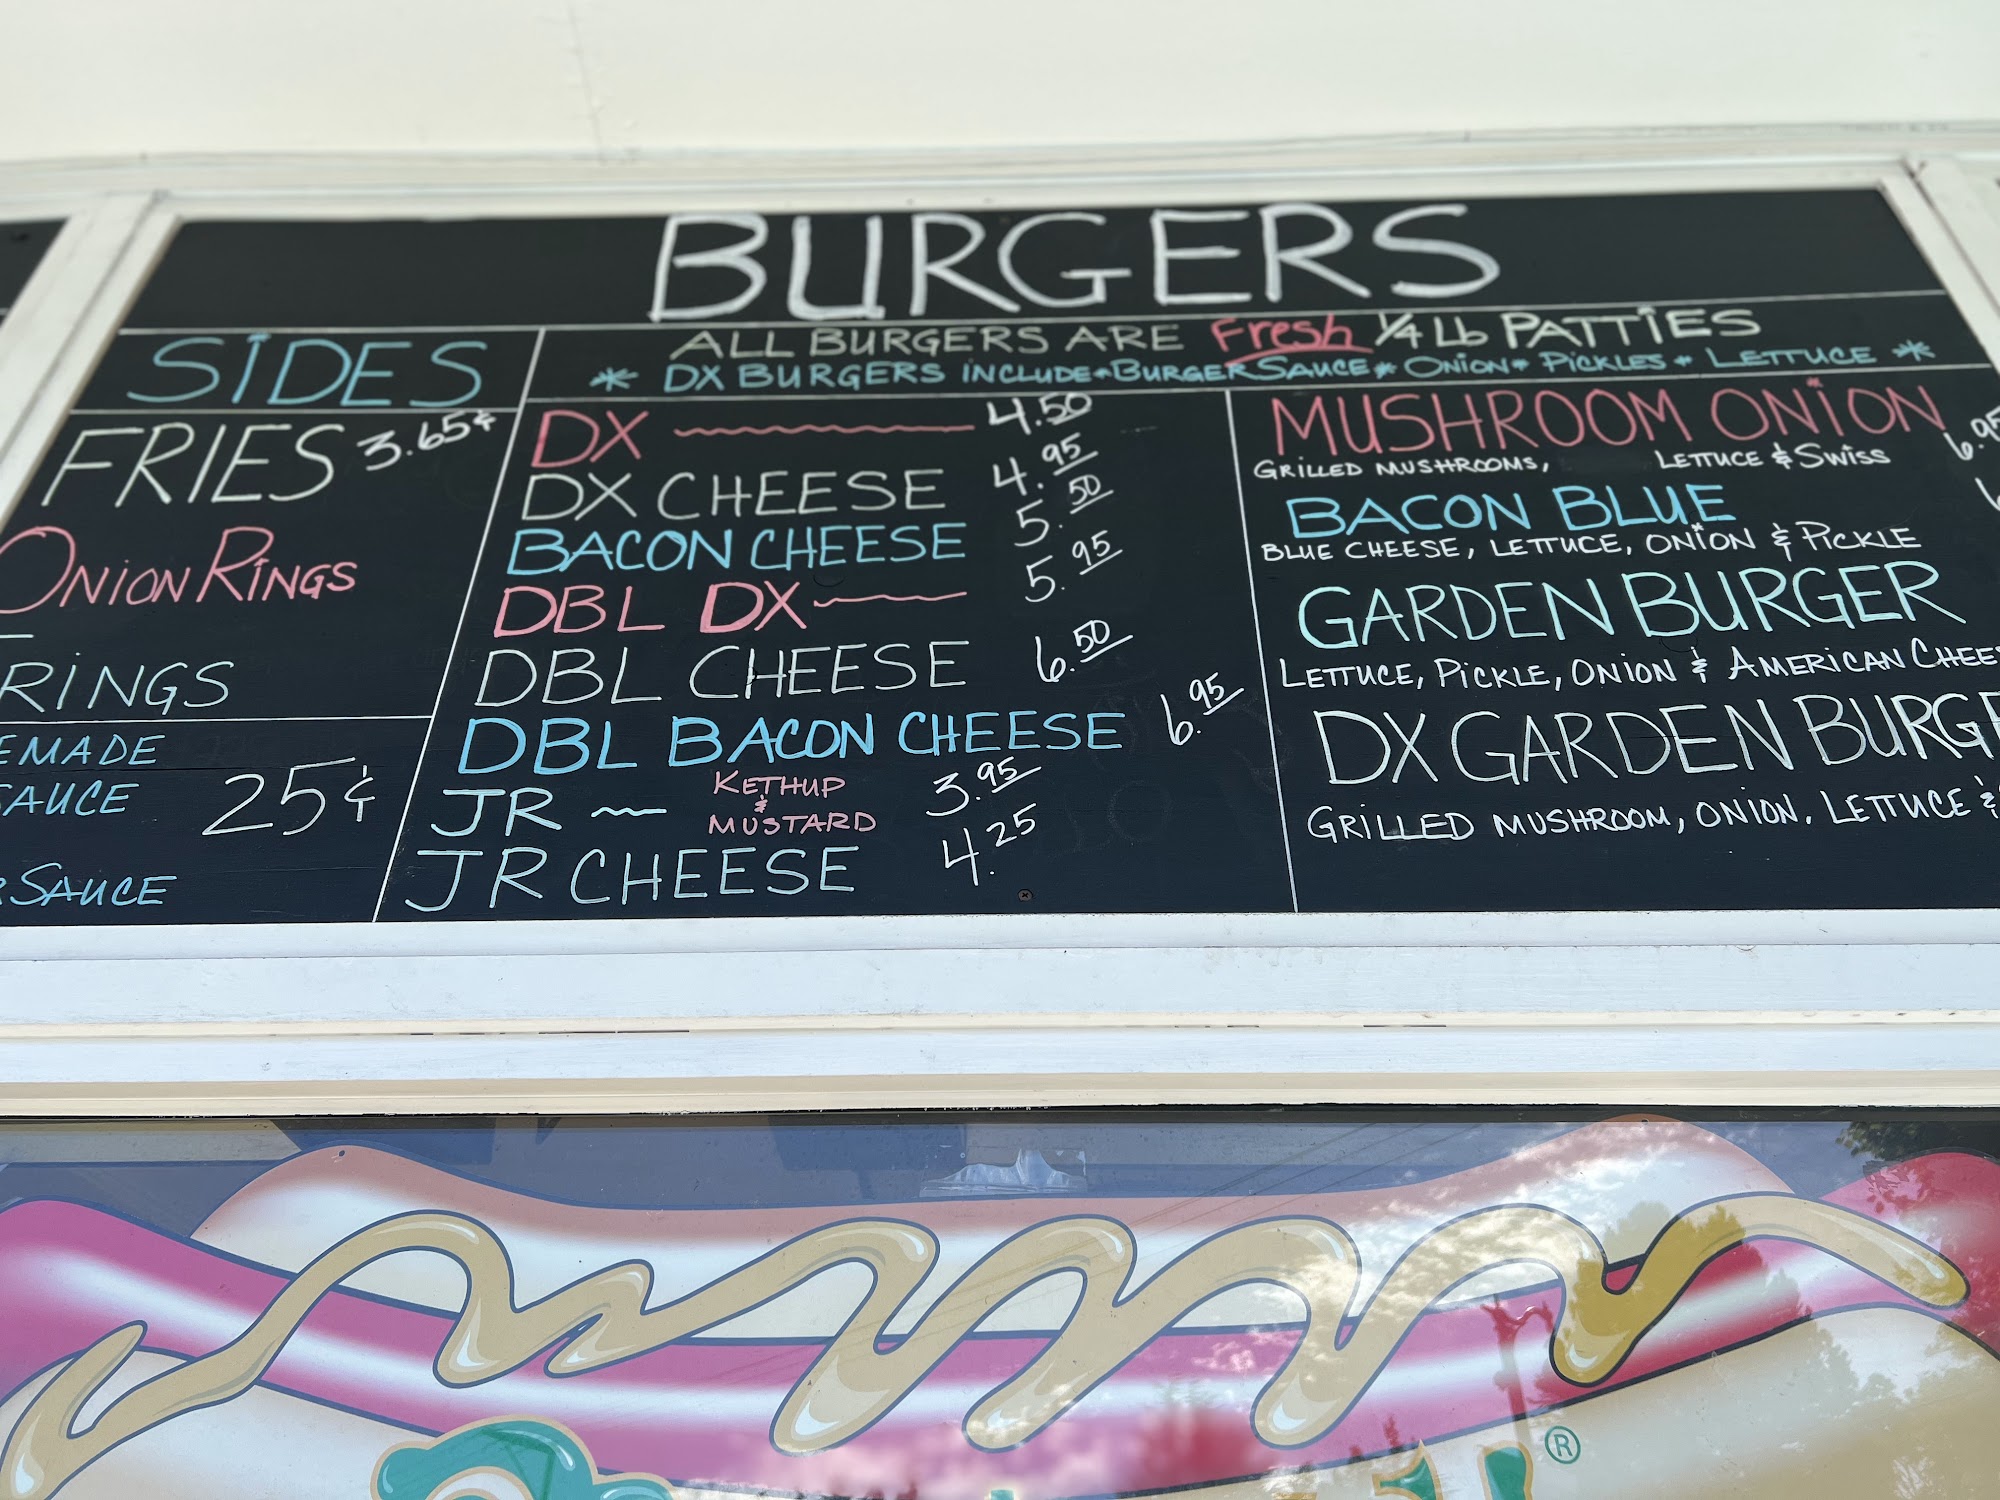 BURGERS
SIDES
FRIES 3.65¢
ONION RINGS
RINGS
EMADE
SAUCE 25¢
SAUCE
ALL BURGERS ARE Fresh 1/4 Lb PATTIES
* DX BURGERS INCLUDE • BURGER SAUCE • ONION • PICKLES • LETTUCE *
DX 4.50
DX CHEESE 4.95
BACON CHEESE 5.50
DBL DX 5.95
DBL CHEESE 6.50
DBL BACON CHEESE 6.95
JR ~ KETHUP & MUSTARD 3.95
JR CHEESE 4.25
MUSHROOM ONION 6.95
GRILLED MUSHROOMS, LETTUCE & SWISS
BACON BLUE
BLUE CHEESE, LETTUCE, ONION & PICKLE
GARDEN BURGER
LETTUCE, PICKLE, ONION & AMERICAN CHEES
DX GARDEN BURGE
GRILLED MUSHROOM, ONION, LETTUCE &
®